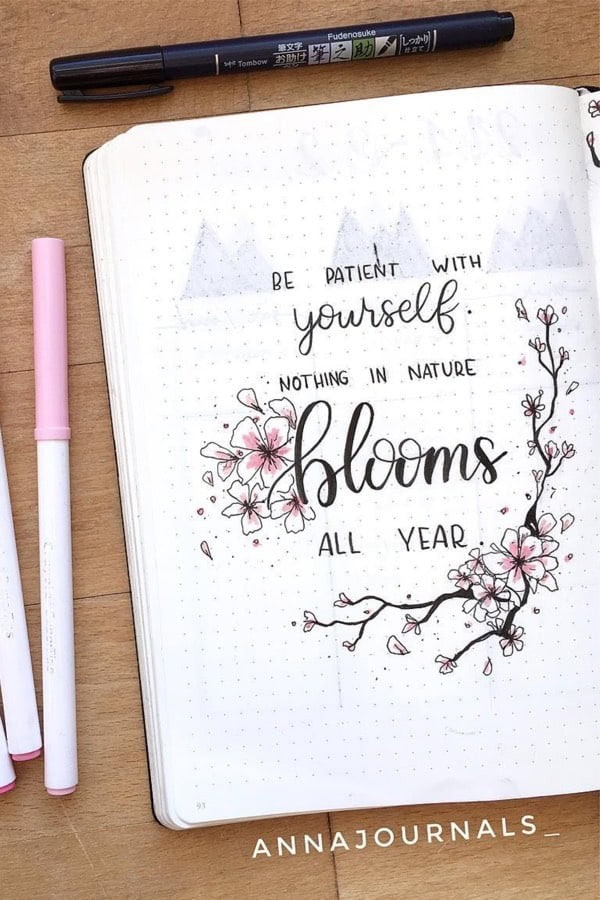 Fudenosuke
Tombow
筆文字
お助け
筆之助
しっかり
仕立て
BE PATIENT WITH
yourself.
NOTHING IN NATURE
blooms
ALL YEAR.
93
ANNAJOURNALS_